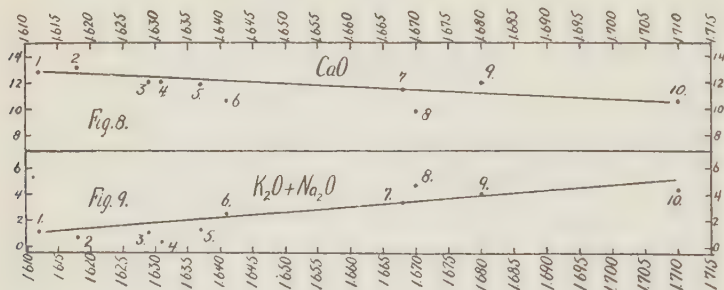 1.610 1.615 1.620 1.625 1.630 1.635 1.640 1.645 1.650 1.655 1.660 1.665 1.670 1.675 1.680 1.685 1.690 1.695 1.700 1.705 1.710 1.715
14 14
1. 2. CaO 7. 9.
12 12
3. 4. 5. 6 10.
10 8 10
Fig.8.
8 8
6 K₂O+Na₂O 8. 6
Fig.9. 6. 9.
4 7. 10. 4
2 1. 2
2 3. 4 5.
0 0
1.610 1.615 1.620 1.625 1.630 1.635 1.640 1.645 1.650 1.655 1.660 1.665 1.670 1.675 1.680 1.685 1.690 1.695 1.700 1.705 1.710 1.715